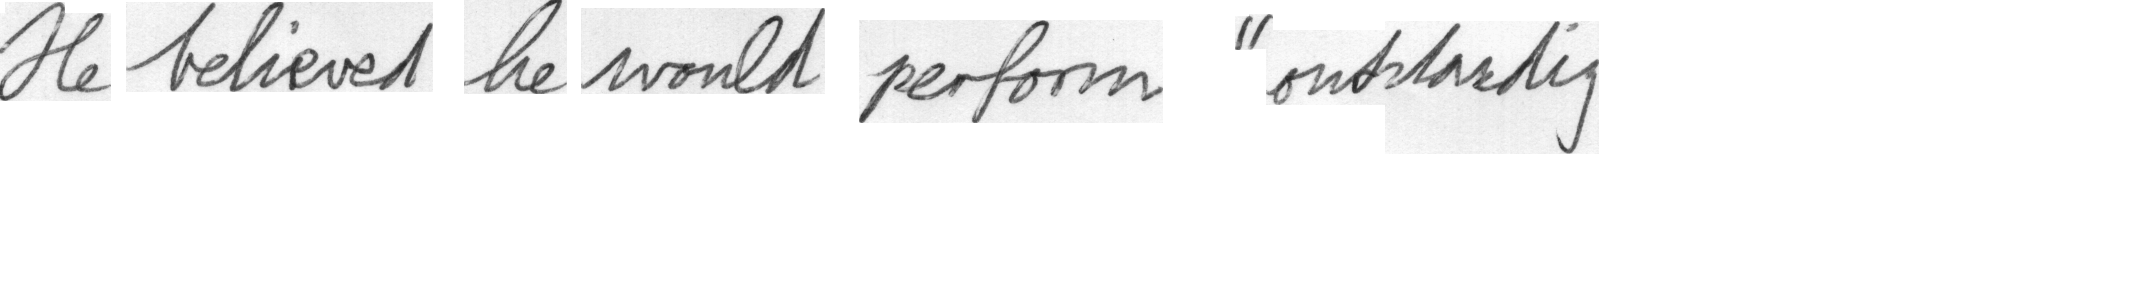 He believed he would perform " outstanding